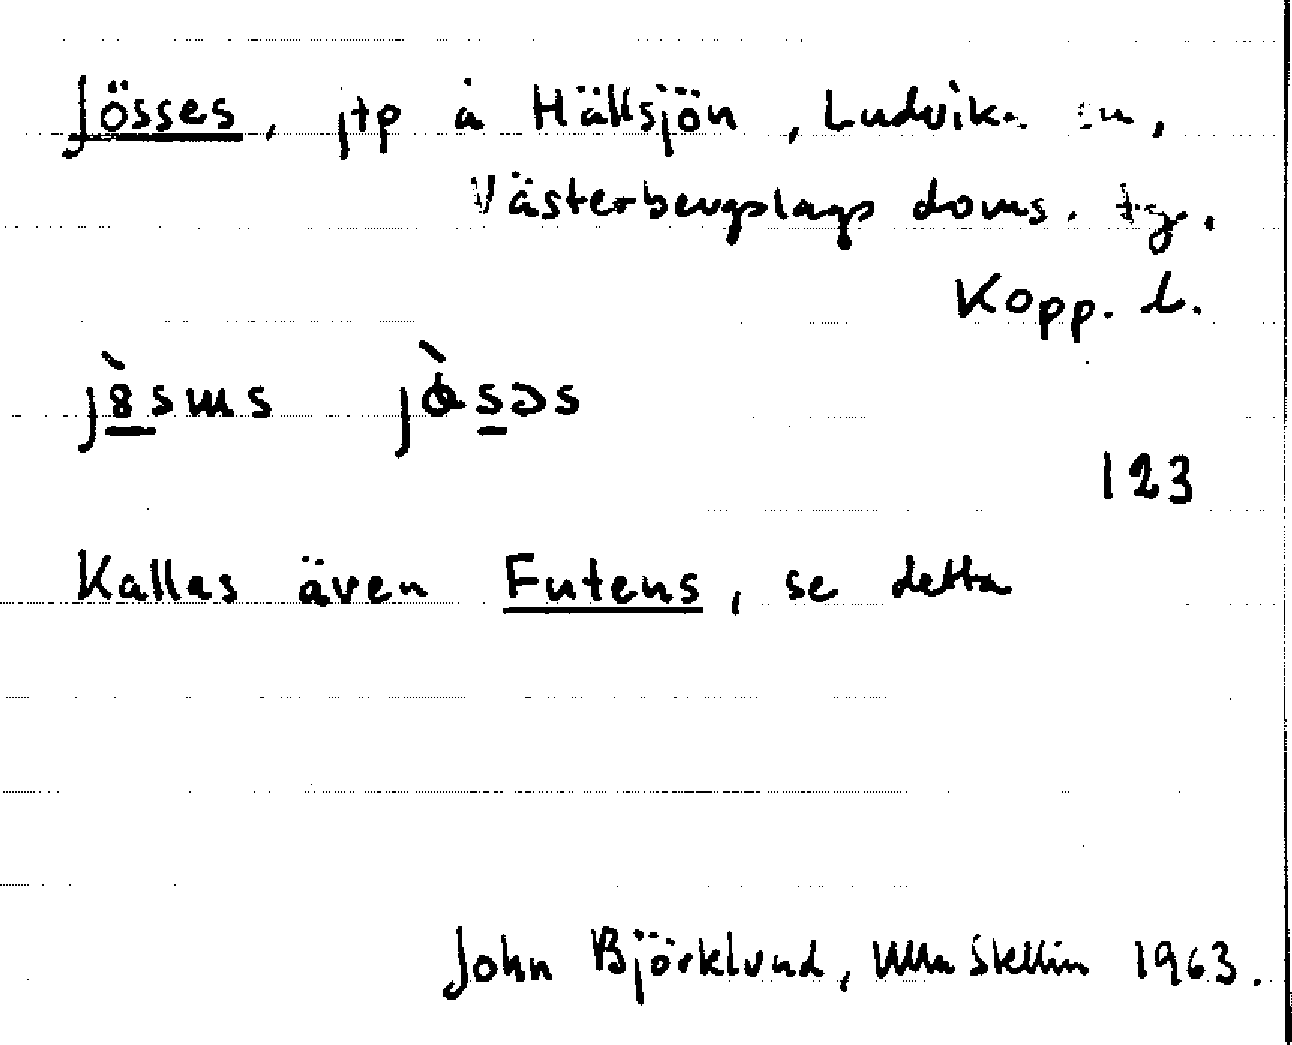 Jösses, jtp å Hällsjön, Ludvika sn,
Västerbergslags doms. tg.
Kopp. l.
j8̀sɯs jɵ̀səs
123
Kallas även Futens, se detta
John Björklund, Ulla Stellin 1963.